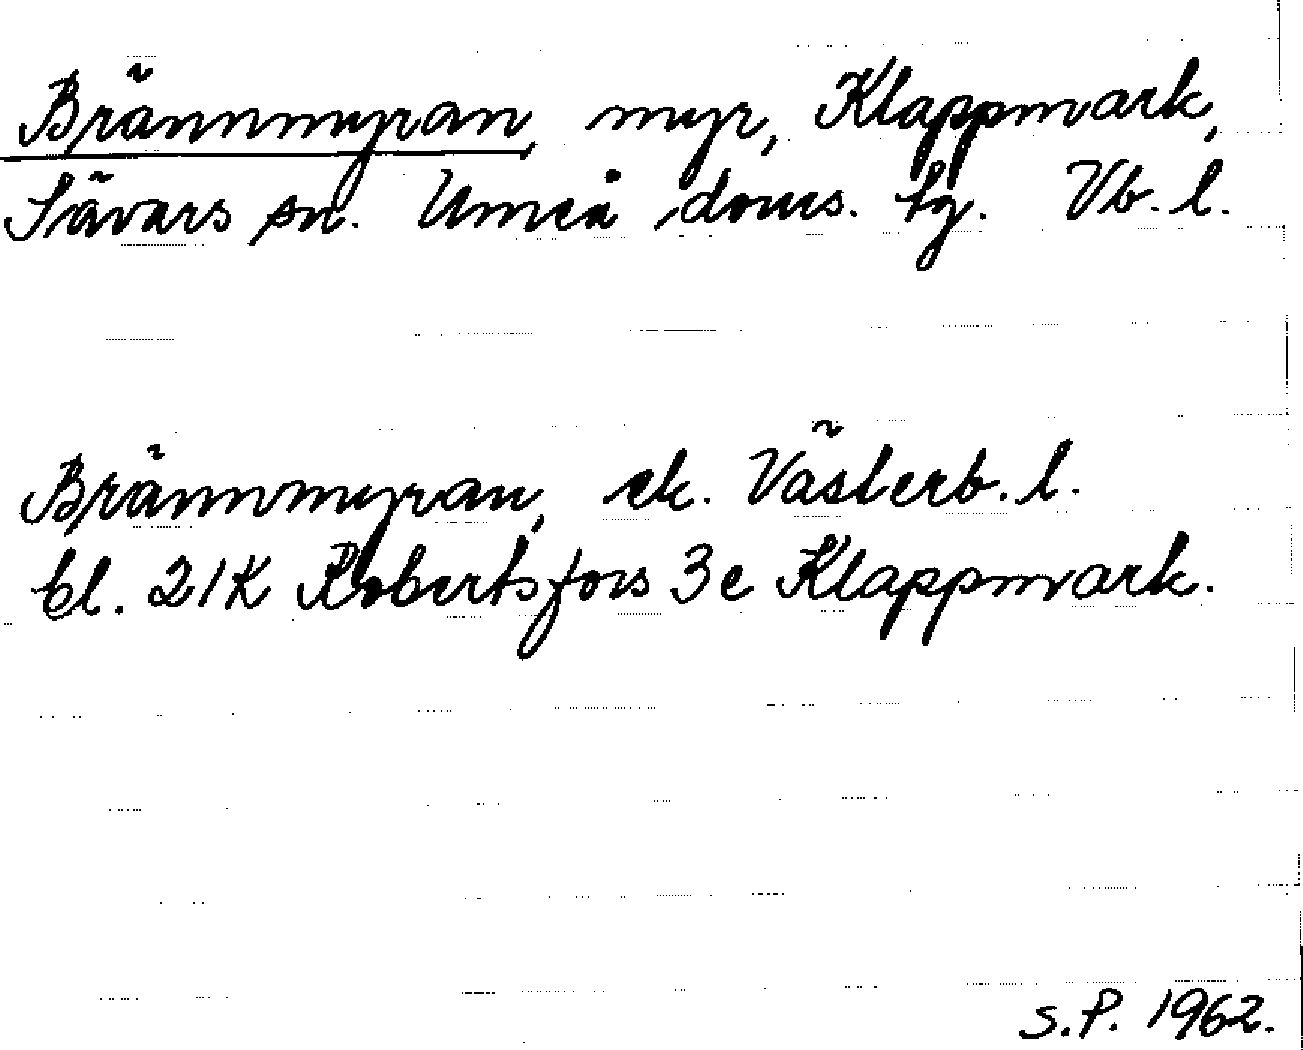 Brännmyran, myr, Klappmark,
Sävars sn. Umeå doms. tg. Vb. l.
Brännmyran, ek. Västerb. l.
bl. 21K Robertsfors 3e Klappmark.
S.P. 1962.